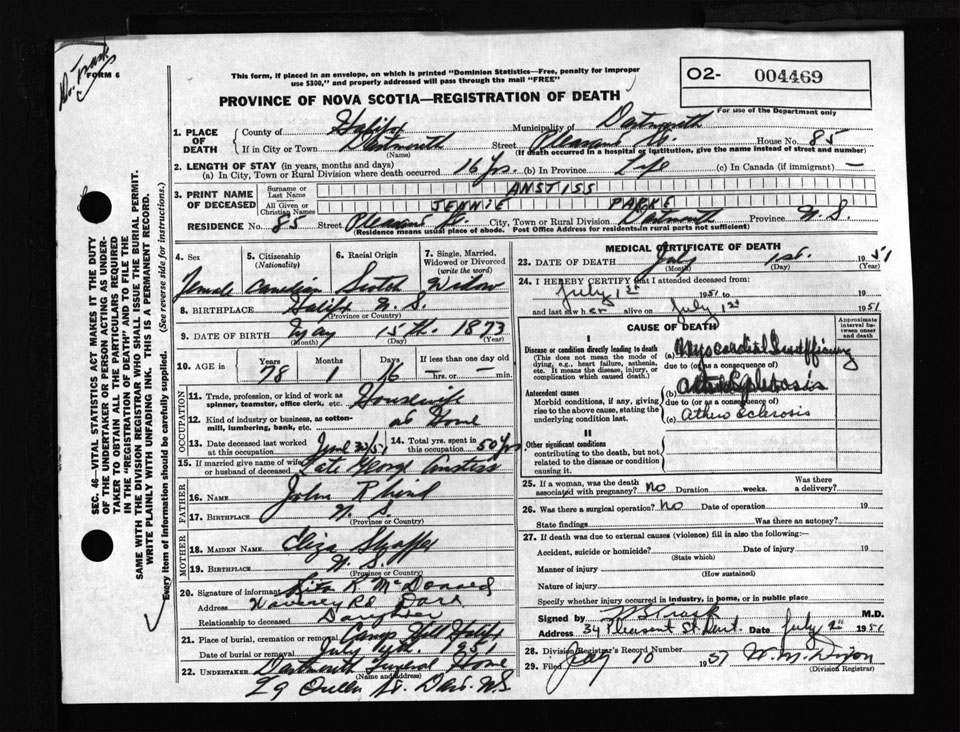 Dr. Trask
FORM 6
This form, if placed in an envelope, on which is printed "Dominion Statistics—Free, penalty for improper
use $300," and properly addressed will pass through the mail "FREE"
O2- 004469
For use of the Department only
PROVINCE OF NOVA SCOTIA—REGISTRATION OF DEATH
1. PLACE OF DEATH
County of Halifx Municipality of Dartmouth
If in City or Town Dartmouth Street Pleasant St. House No. 85
(Name) (If death occurred in a hospital or institution, give the name instead of street and number)
2. LENGTH OF STAY (in years, months and days)
(a) In City, Town or Rural Division where death occurred 16 Yrs. (b) In Province Life (c) In Canada (if immigrant) —
3. PRINT NAME OF DECEASED
Surname or Last Name ANSTISS
All Given or Christian Names JENNIE PARKE
RESIDENCE No. 85 Street Pleasant St. City, Town or Rural Division Dartmouth Province N.S.
(Residence means usual place of abode. Post Office Address for residents in rural parts not sufficient)
SEC. 46—VITAL STATISTICS ACT MAKES IT THE DUTY
OF THE UNDERTAKER OR PERSON ACTING AS UNDER-
TAKER TO OBTAIN ALL THE PARTICULARS REQUIRED
IN THE "REGISTRATION OF DEATH" AND TO FILE THE
SAME WITH THE DIVISION REGISTRAR WHO SHALL ISSUE THE BURIAL PERMIT.
WRITE PLAINLY WITH UNFADING INK. THIS IS A PERMANENT RECORD.
Every item of information should be carefully supplied. (See reverse side for instructions.)
4. Sex Female
5. Citizenship (Nationality) Canadian
6. Racial Origin Scotch
7. Single, Married, Widowed or Divorced (write the word) Widow
8. BIRTHPLACE Halifx N.S.
(Province or Country)
9. DATE OF BIRTH May 15th. 1873
(Month) (Day) (Year)
10. AGE in Years 78 Months 1 Days 16 If less than one day old — hrs. or — min.
OCCUPATION
11. Trade, profession, or kind of work as spinner, teamster, office clerk, etc. Housewife
12. Kind of industry or business, as cotton-mill, lumbering, bank, etc. at Home
13. Date deceased last worked at this occupation June 30/51
14. Total yrs. spent in this occupation 50 Yrs.
15. If married give name of wife or husband of deceased Late George Anstiss
FATHER
16. NAME John Rhind
17. BIRTHPLACE N.S.
(Province or Country)
MOTHER
18. MAIDEN NAME Eliza
19. BIRTHPLACE N.S.
(Province or Country)
20. Signature of informant Rita K McDonald
Address Waverley Rd. Dart
Relationship to deceased Daughter
21. Place of burial, cremation or removal Camp Hill Halifx
Date of burial or removal July 1951
22. UNDERTAKER Dartmouth Funeral Home
(Name and address)
29 Queen St. Dart. N.S.
MEDICAL CERTIFICATE OF DEATH
23. DATE OF DEATH July 1st. 1951
(Month) (Day) (Year)
24. I HEREBY CERTIFY that I attended deceased from:
July 1st 1951 to
and last saw her alive on July 1st 1951
CAUSE OF DEATH
Approximate interval between onset and death
I
Disease or condition directly leading to death
(This does not mean the mode of dying, e.g., heart failure, asthenia, etc. It means the disease, injury, or complication which caused death.
(a) Myocardial Insufficiency
due to (or as a consequence of)
Antecedent causes
Morbid conditions, if any, giving rise to the above cause, stating the underlying condition last.
(b)
due to (or as a consequence of)
(c) Athero Sclerosis
II
Other significant conditions
contributing to the death, but not related to the disease or condition causing it.
25. If a woman, was the death associated with pregnancy? No Duration weeks. Was there a delivery?
26. Was there a surgical operation? No Date of operation 19
State findings Was there an autopsy?
27. If death was due to external causes (violence) fill in also the following:—
Accident, suicide or homicide? Date of injury 19
(State which)
Manner of injury
(How sustained)
Nature of injury
Specify whether injury occurred in industry, in home, or in public place
Signed by Trask M.D.
Address 34 Pleasant St. Dart. Date July 2nd 1951
28. Division Registrar's Record Number
29. Filed July 10 1951 W. M. Dixon
(Division Registrar)